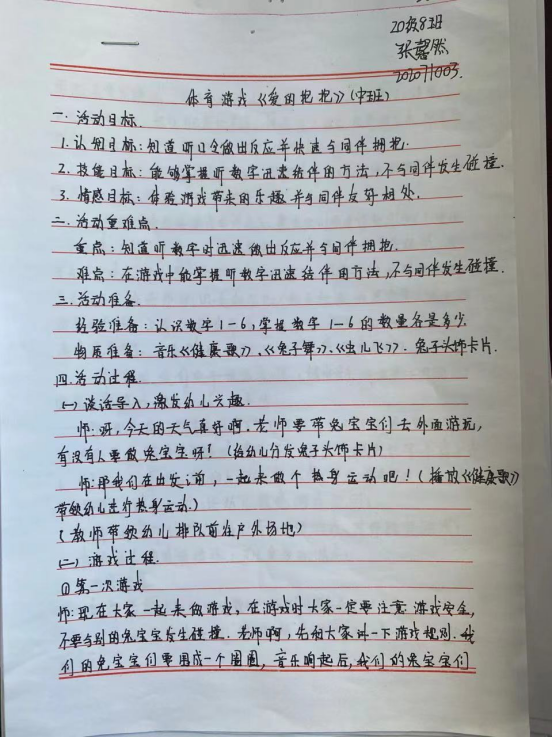 20级8班
张馨然
202071003
体育游戏《爱的抱抱》(中班)
一.活动目标.
1.认知目标:知道听口令做出反应并快速与同伴拥抱.
2.技能目标:能够掌握听数字迅速结伴的方法,不与同伴发生碰撞.
3.情感目标:体验游戏带来的乐趣并与同伴友好相处.
二.活动重难点.
重点:知道听数字时迅速做出反应并与同伴拥抱.
难点:在游戏中能掌握听数字迅速结伴的方法,不与同伴发生碰撞.
三.活动准备.
经验准备:认识数字1-6,掌握数字1-6的数量各是多少.
物质准备:音乐《健康歌》、《兔子舞》、《虫儿飞》.兔子头饰卡片.
四.活动过程.
(一)谈话导入,激发幼儿兴趣.
师:呀,今天的天气真好啊,老师要带兔宝宝们去外面游玩,
有没有人要做兔宝宝呀!(给幼儿分发兔子头饰卡片)
师:那我们在出发之前,一起来做个热身运动吧!(播放《健康歌》
带领幼儿进行热身运动.)
(教师带领幼儿排队前往户外场地)
(二)游戏过程.
①第一次游戏
师:现在大家一起来做游戏,在游戏时大家一定要注意游戏安全,
不要与别的兔宝宝发生碰撞.老师啊,先和大家讲一下游戏规则.我
们的兔宝宝们要围成一个圆圈,音乐响起后,我们的兔宝宝们